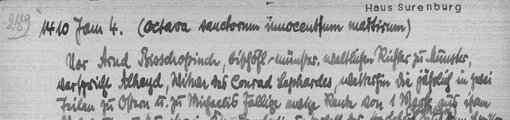 Haus Surenburg
289
1410 Jan 4. (octava sanctorum innocentium martirum)
Vor Arnd Bisschopinch, bischöfl.-münster. weltlichen Richter zu Münster,
verspricht Alheyd, Witwe des Conrad Lephardes, weiterhin die jährlich in zwei
Teilen zu Ostern u. zu Michaelis fällige Rente von 1 Mark aus ihrem